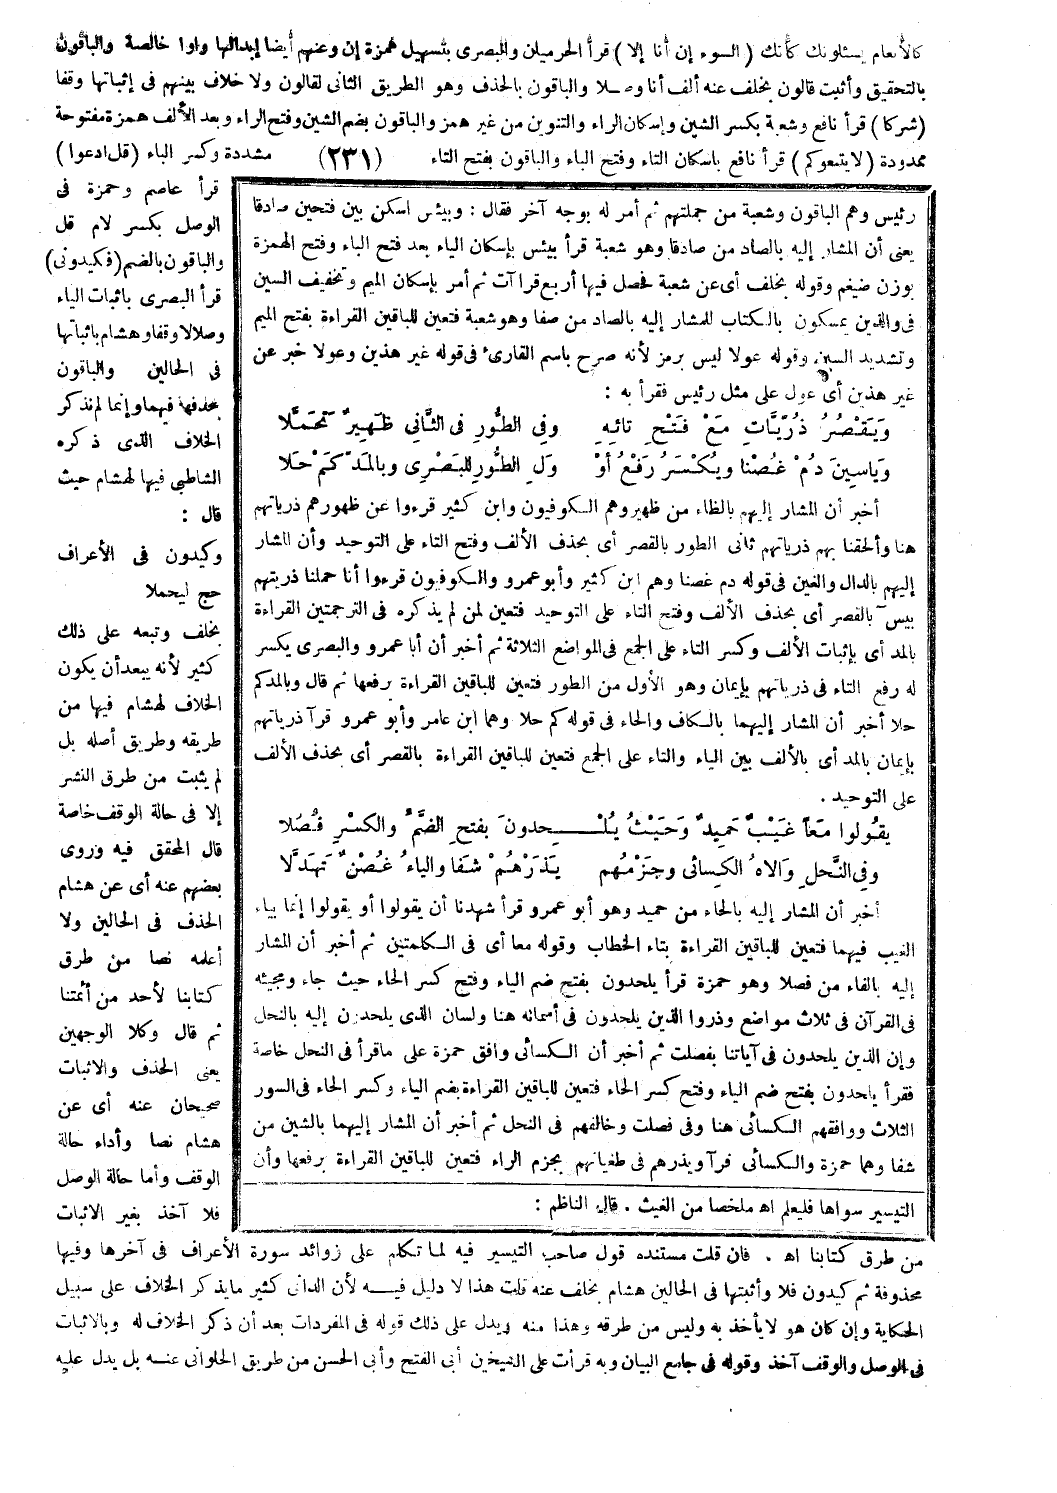 كالأنعام يسئلونك كأنك ( السوء إن أنا إلا ) قرأ الحرميان والبصرى بتسهيل همزة إن وعنهم أيضا إبدالها واوا خالصة والباقون
بالتحقيق وأثبت قالون بخلف عنه ألف أنا وصلا والباقون بالحذف وهو الطريق الثانى لقالون ولا خلاف بينهم فى إثباتها وقفا
(شركا ) قرأ نافع وشعبة بكسر الشين وإسكان الراء والتنوين من غير همز والباقون بضم الشين وفتح الراء وبعد الألف همزة مفتوحة
ممدودة ( لا يتبعوكم ) قرأ نافع باسكان التاء وفتح الباء والباقون بفتح التاء (٢٣١) مشددة وكسر الباء ( قل ادعوا )
قرأ عاصم وحمزة فى
الوصل بكسر لام قل
والباقون بالضم (فكيدونى)
قرأ البصرى باثبات الياء
وصلا لا وقفا وهشام باثباتها
فى الحالين والباقون
بحذفها فيهما وإنما لم نذكر
الخلاف الذى ذكره
الشاطبى فيها لهشام حيث
قال :
وكيدون فى الأعراف
حج ليحملا
بخلف وتبعه على ذلك
كثير لأنه يبعد أن يكون
الخلاف لهشام فيها من
طريقه وطريق أصله بل
لم يثبت من طرق النشر
إلا فى حالة الوقف خاصة
قال المحقق فيه وروى
بعضهم عنه أى عن هشام
الحذف فى الحالين ولا
أعلمه نصا من طرق
كتابنا لأحد من أئمتنا
ثم قال وكلا الوجهين
يعنى الحذف والاثبات
صحيحان عنه أى عن
هشام نصا وأداء حالة
الوقف وأما حالة الوصل
فلا آخذ بغير الاثبات
من طرق كتابنا اه . فان قلت مستنده قول صاحب التيسير فيه لما تكلم على زوائد سورة الأعراف فى آخرها وفيها
محذوفة ثم كيدون فلا وأثبتها فى الحالين هشام بخلف عنه قلت هذا لا دليل فيه لأن الدانى كثير ما يذكر الخلاف على سبيل
الحكاية وإن كان هو لا يأخذ به وليس من طرقه وهذا منه ويدل على ذلك قوله فى المفردات بعد أن ذكر الخلاف له وبالاثبات
فى الوصل والوقف آخذ وقوله فى جامع البيان وبه قرأت على الشيخين أبى الفتح وأبى الحسن من طريق الحلوانى عنه بل يدل عليه
رئيس وهم الباقون وشعبة من جملتهم ثم أمر له بوجه آخر فقال : وبيئس اسكن بين فتحين صادقا
يعنى أن المشار إليه بالصاد من صادقا وهو شعبة قرأ بيئس بإسكان الياء بعد فتح الباء وفتح الهمزة
بوزن ضيغم وقوله بخلف أى عن شعبة فحصل فيها أربع قراآت ثم أمر بإسكان الميم وتخفيف السين
فى والذين يمسكون بالكتاب للمشار إليه بالصاد من صفا وهو شعبة فتعين للباقين القراءة بفتح الميم
وتشديد السين وقوله عولا ليس برمز لأنه صرح باسم القارئ فى قوله غير هذين وعولا خبر عن
غير هذين أى عول على مثل رئيس فقرأ به :
وَيَقْصُرُ ذُرِّيَّاتِ مَعْ فَتْحِ تائِهِ وفِى الطُّورِ فى الثَّانِى ظَهِيرٌ تَحَمَّلَا
وَيَاسِينَ دُمْ غُصْنًا ويُكْسَرُ رَفْعُ أوْ وَلِ الطُّورِ للبَصْرِى وبالمَدِّ كَمْ حَلَا
أخبر أن المشار إليهم بالظاء من ظهير وهم الكوفيون وابن كثير قرءوا عن ظهورهم ذرياتهم
هنا وألحقنا بهم ذرياتهم ثانى الطور بالقصر أى بحذف الألف وفتح التاء على التوحيد وأن المشار
إليهم بالدال والغين فى قوله دم غصنا وهم ابن كثير وأبو عمرو والكوفيون قرءوا أنا حملنا ذريتهم
بيس بالقصر أى بحذف الألف وفتح التاء على التوحيد فتعين لمن لم يذكره فى الترجمتين القراءة
بالمد أى بإثبات الألف وكسر التاء على الجمع فى المواضع الثلاثة ثم أخبر أن أبا عمرو والبصرى يكسر
له رفع التاء فى ذرياتهم بإيمان وهو الأول من الطور فتعين للباقين القراءة برفعها ثم قال وبالمد كم
حلا أخبر أن المشار إليهما بالكاف والحاء فى قوله كم حلا وهما ابن عامر وأبو عمرو قرآ ذرياتهم
بإيمان بالمد أى بالألف بين الياء والتاء على الجمع فتعين للباقين القراءة بالقصر أى بحذف الألف
على التوحيد .
يقُولُوا مَعًا غَيْبٌ حَمِيدٌ وَحَيْثُ يُلْـحِدونَ بفَتحِ الضَّمِّ والكَسْرِ فُصِّلَا
وفِى النَّحْلِ وَالاهُ الكِسائى وجَزْمُهُم يَذَرْهُمْ شَفَا والياءُ غُصْنٌ تَهَدَّلَا
أخبر أن المشار إليه بالحاء من حميد وهو أبو عمرو قرأ شهدنا أن يقولوا أو يقولوا إنما بياء
الغيب فيهما فتعين للباقين القراءة بتاء الخطاب وقوله معا أى فى الكلمتين ثم أخبر أن المشار
إليه بالفاء من فصلا وهو حمزة قرأ يلحدون بفتح ضم الياء وفتح كسر الحاء حيث جاء ومجيئه
فى القرآن فى ثلاث مواضع وذروا الذين يلحدون فى أسمائه هنا ولسان الذى يلحدون إليه بالنحل
وإن الذين يلحدون فى آياتنا بفصلت ثم أخبر أن الكسائى وافق حمزة على ما قرأ فى النحل خاصة
فقرأ يلحدون بفتح ضم الياء وفتح كسر الحاء فتعين للباقين القراءة بضم الياء وكسر الحاء فى السور
الثلاث ووافقهم الكسائى هنا وفى فصلت وخالفهم فى النحل ثم أخبر أن المشار إليهما بالشين من
شفا وهما حمزة والكسائى قرآ ويذرهم فى طغيانهم بجزم الراء فتعين للباقين القراءة برفعها وأن
التيسير سواها فليعلم اه ملخصا من الغيث . قال الناظم :